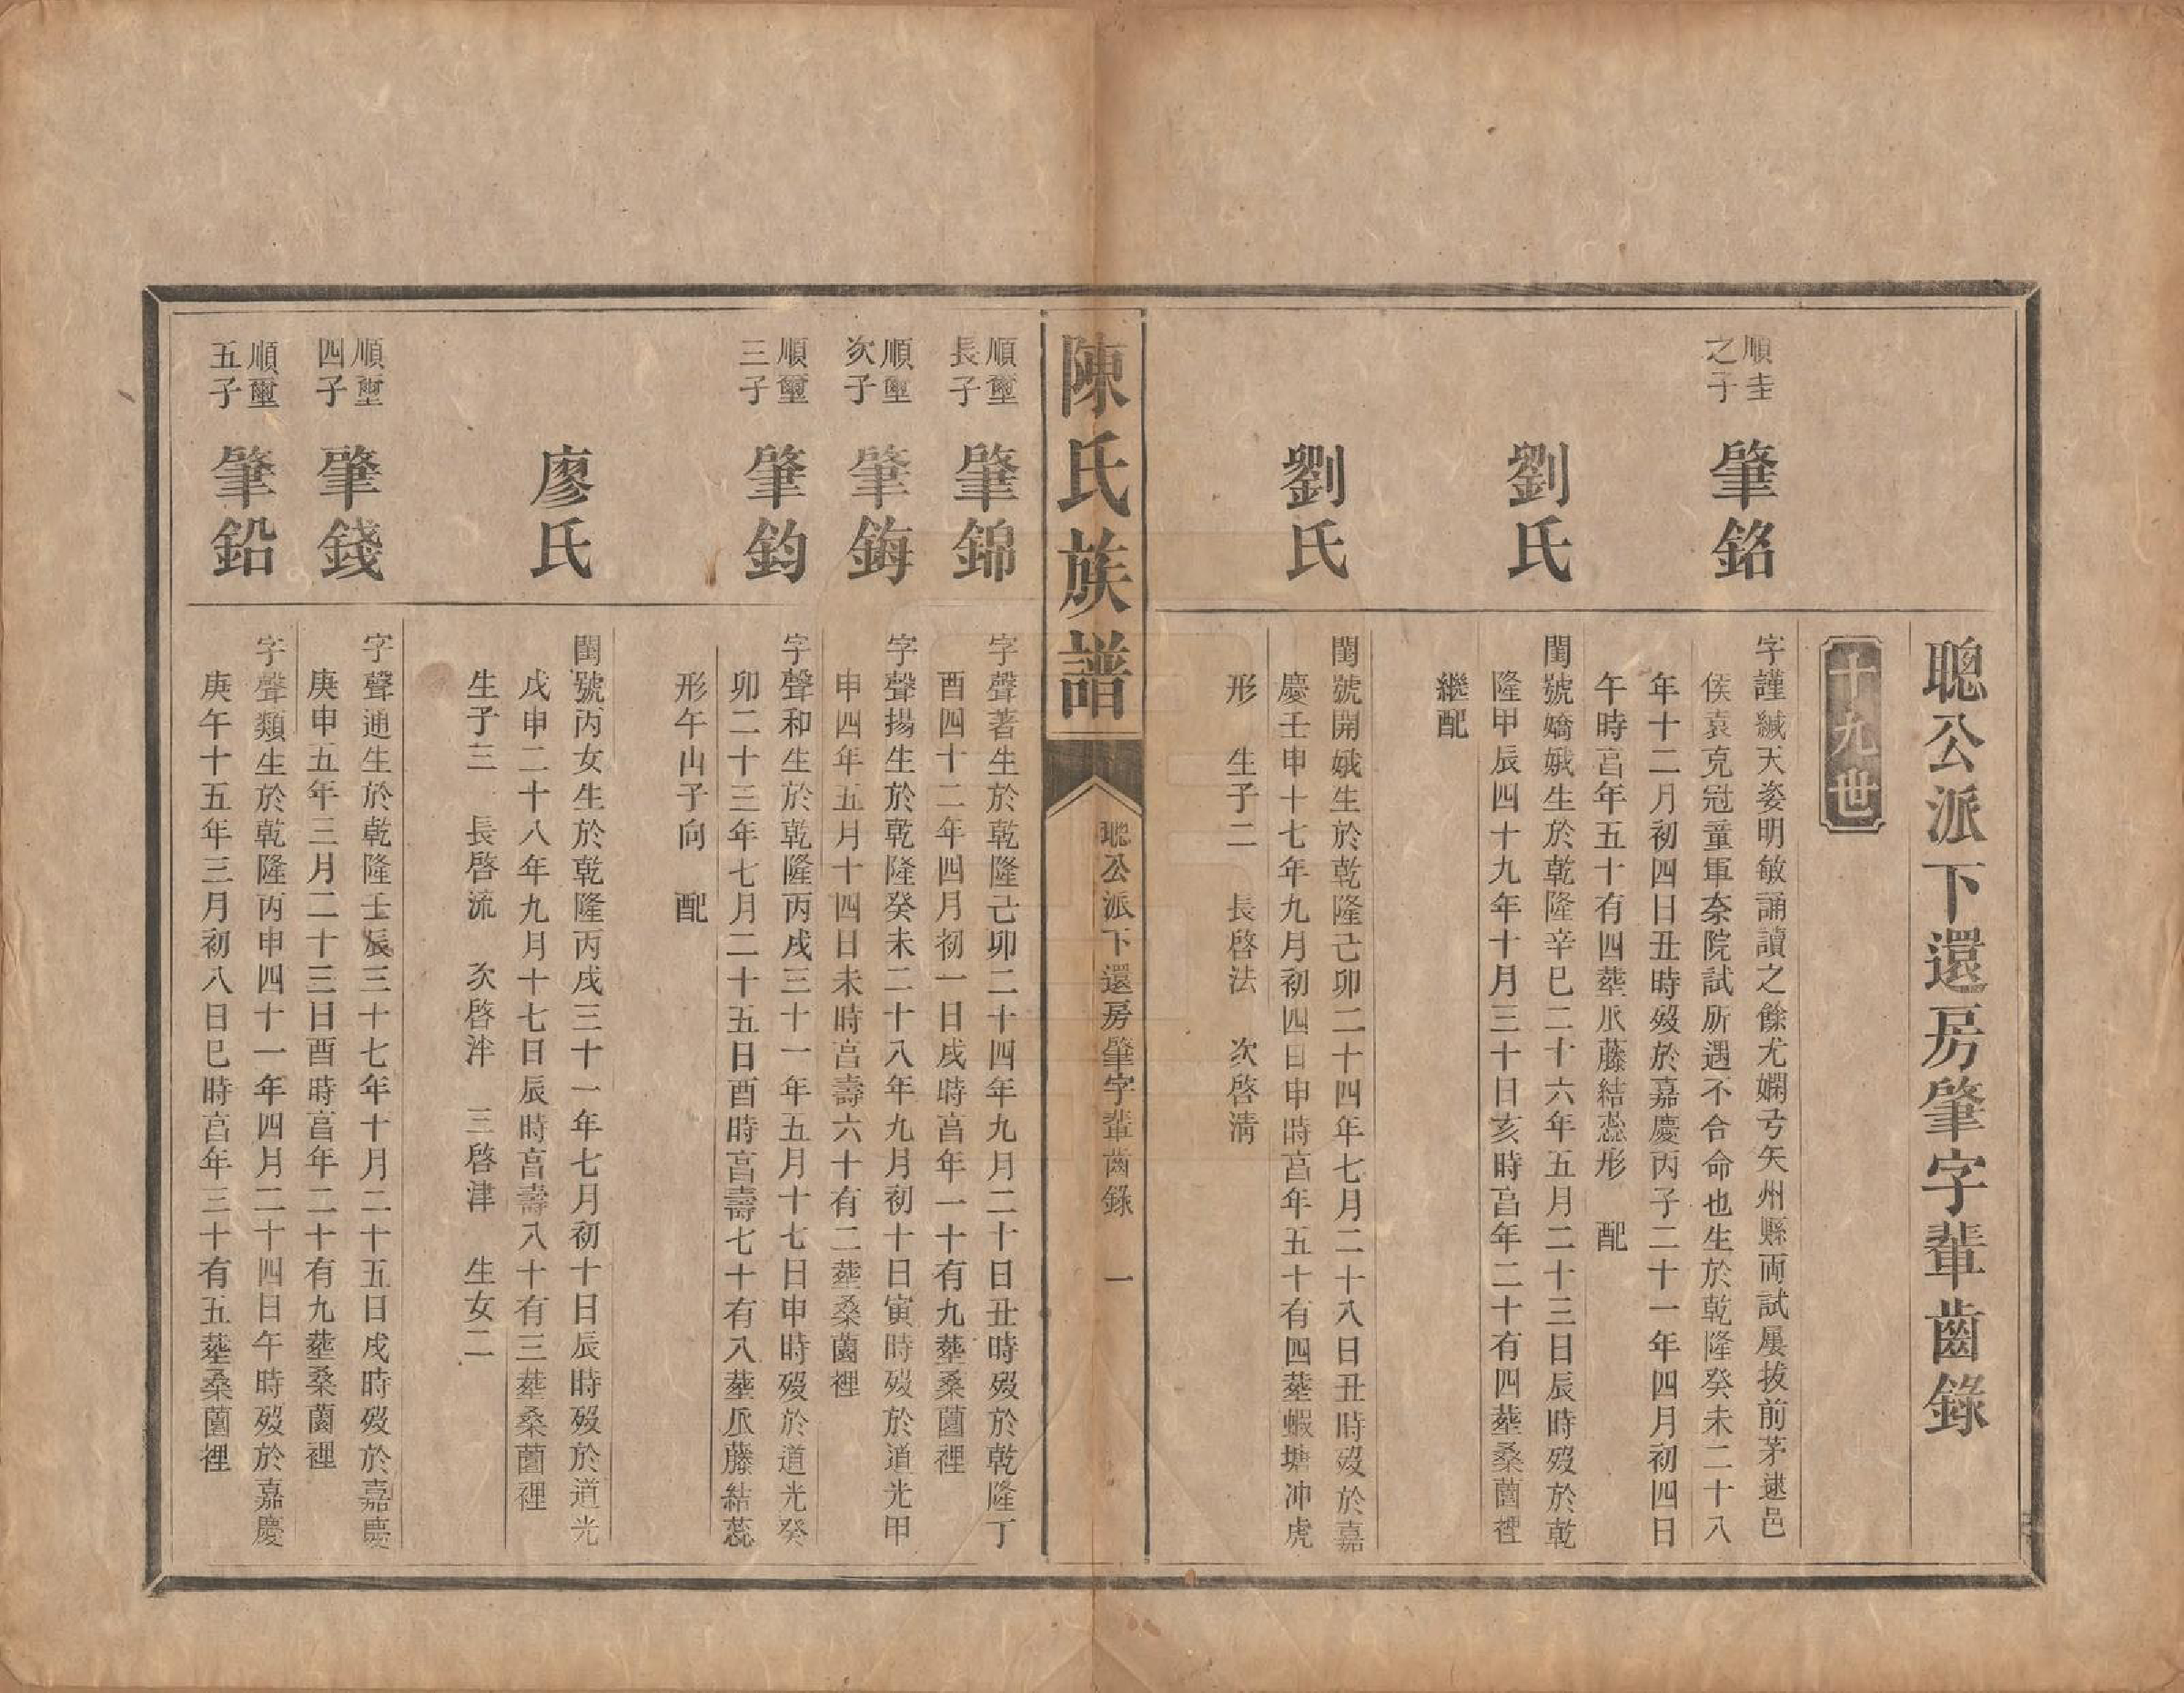 聰公派下還房肇字輩齒錄
十九世
順圭
之子
肇銘
字謹緘天姿明敏誦讀之餘尤嫻弓矢州縣両試屢拔前茅逮邑
侯袁克冠童軍奈院試所遇不合命也生於乾隆癸未二十八
年十二月初四日丑時歿於嘉慶丙子二十一年四月初四日
午時亯年五十有四塟爪藤結蕊形　配
劉氏
閨號嬌娥生於乾隆辛巳二十六年五月二十三日辰時歿於乾
隆甲辰四十九年十月三十日亥時亯年二十有四塟桑薗裡
繼配
劉氏
閨號開娥生於乾隆己卯二十四年七月二十八日丑時歿於嘉
慶壬申十七年九月初四日申時亯年五十有四塟蝦塘冲虎
形　生子二　長啓法　次啓淸
陳氏族譜
聰公派下還房肇字輩齒錄　一
順璽
長子
肇錦
字聲著生於乾隆己卯二十四年九月二十日丑時歿於乾隆丁
酉四十二年四月初一日戌時亯年一十有九塟桑薗裡
順璽
次子
肇鋂
字聲揚生於乾隆癸未二十八年九月初十日寅時歿於道光甲
申四年五月十四日未時亯壽六十有二塟桑薗裡
順璽
三子
肇鈞
字聲和生於乾隆丙戌三十一年五月十七日申時歿於道光癸
卯二十三年七月二十五日酉時亯壽七十有八塟爪藤結蕊
形午山子向　配
廖氏
閨號丙女生於乾隆丙戌三十一年七月初十日辰時歿於道光
戊申二十八年九月十七日辰時亯壽八十有三塟桑薗裡
生子三　長啓流　次啓泮　三啓津　生女二
順璽
四子
肇錢
字聲通生於乾隆壬辰三十七年十月二十五日戌時歿於嘉慶
庚申五年三月二十三日酉時亯年二十有九塟桑薗裡
順璽
五子
肇鉛
字聲類生於乾隆丙申四十一年四月二十四日午時歿於嘉慶
庚午十五年三月初八日巳時亯年三十有五塟桑薗裡